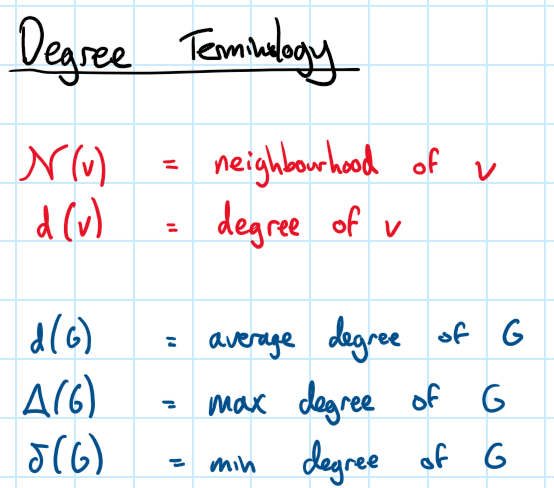 Degree Terminology
N(v) = neighbourhood of v
d(v) = degree of v
d(G) = average degree of G
Δ(G) = max degree of G
δ(G) = min degree of G